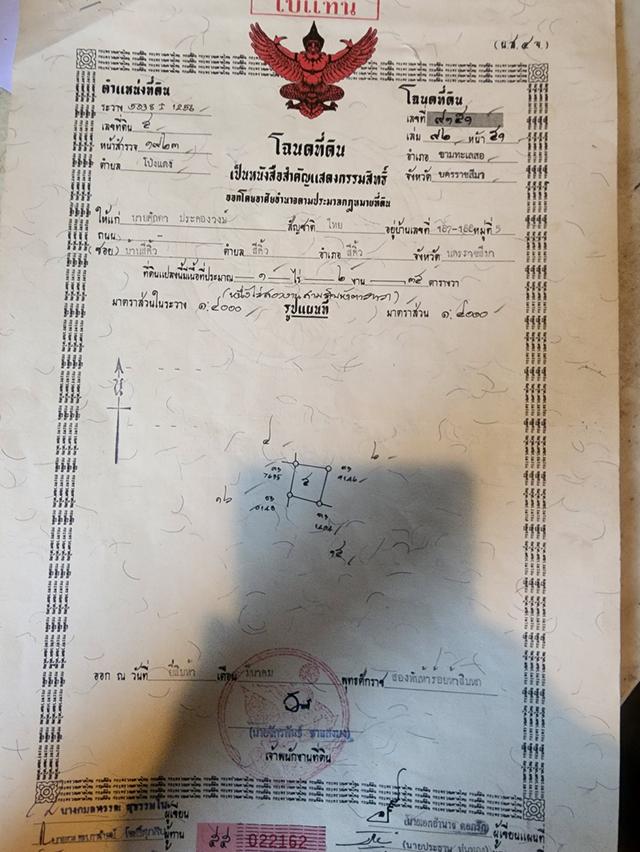 ใบแทน
(น.ส.๔ จ.)
ตำแหน่งที่ดิน
ระวาง 5038 I 1256
เลขที่ดิน ๕
หน้าสำรวจ ๑๗๒๓
ตำบล โป่งแดง
โฉนดที่ดิน
เลขที่ ๙๑๕๑
เล่ม ๙๒ หน้า ๕๑
อำเภอ ขามทะเลสอ
จังหวัด นครราชสีมา
โฉนดที่ดิน
เป็นหนังสือสำคัญแสดงกรรมสิทธิ์
ออกโดยอาศัยอำนาจตามประมวลกฎหมายที่ดิน
ให้แก่ ประคองวงษ์ สัญชาติ ไทย อยู่บ้านเลขที่ 187-188 หมู่ที่ 5
ถนน
(ซอย) บ้านสีคิ้ว ตำบล สีคิ้ว อำเภอ สีคิ้ว จังหวัด นครราชสีมา
ที่ดินแปลงนี้มีเนื้อที่ประมาณ ๑ ไร่ ๒ งาน ๓๕ ตารางวา
(หนึ่งไร่สองงานสามสิบห้าตารางวา)
มาตราส่วนในระวาง ๑:๔๐๐๐ รูปแผนที่ มาตราส่วน ๑:๔๐๐๐
น
๔ ๒
7695 9146
๕
๑๖
ออก ณ วันที่ ยี่สิบห้า เดือน มีนาคม พุทธศักราช สองพันห้าร้อย
เจ้าพนักงานที่ดิน
ผู้เขียน
ผู้ทาน
ผู้เขียนแผนที่
๕๕ 022162